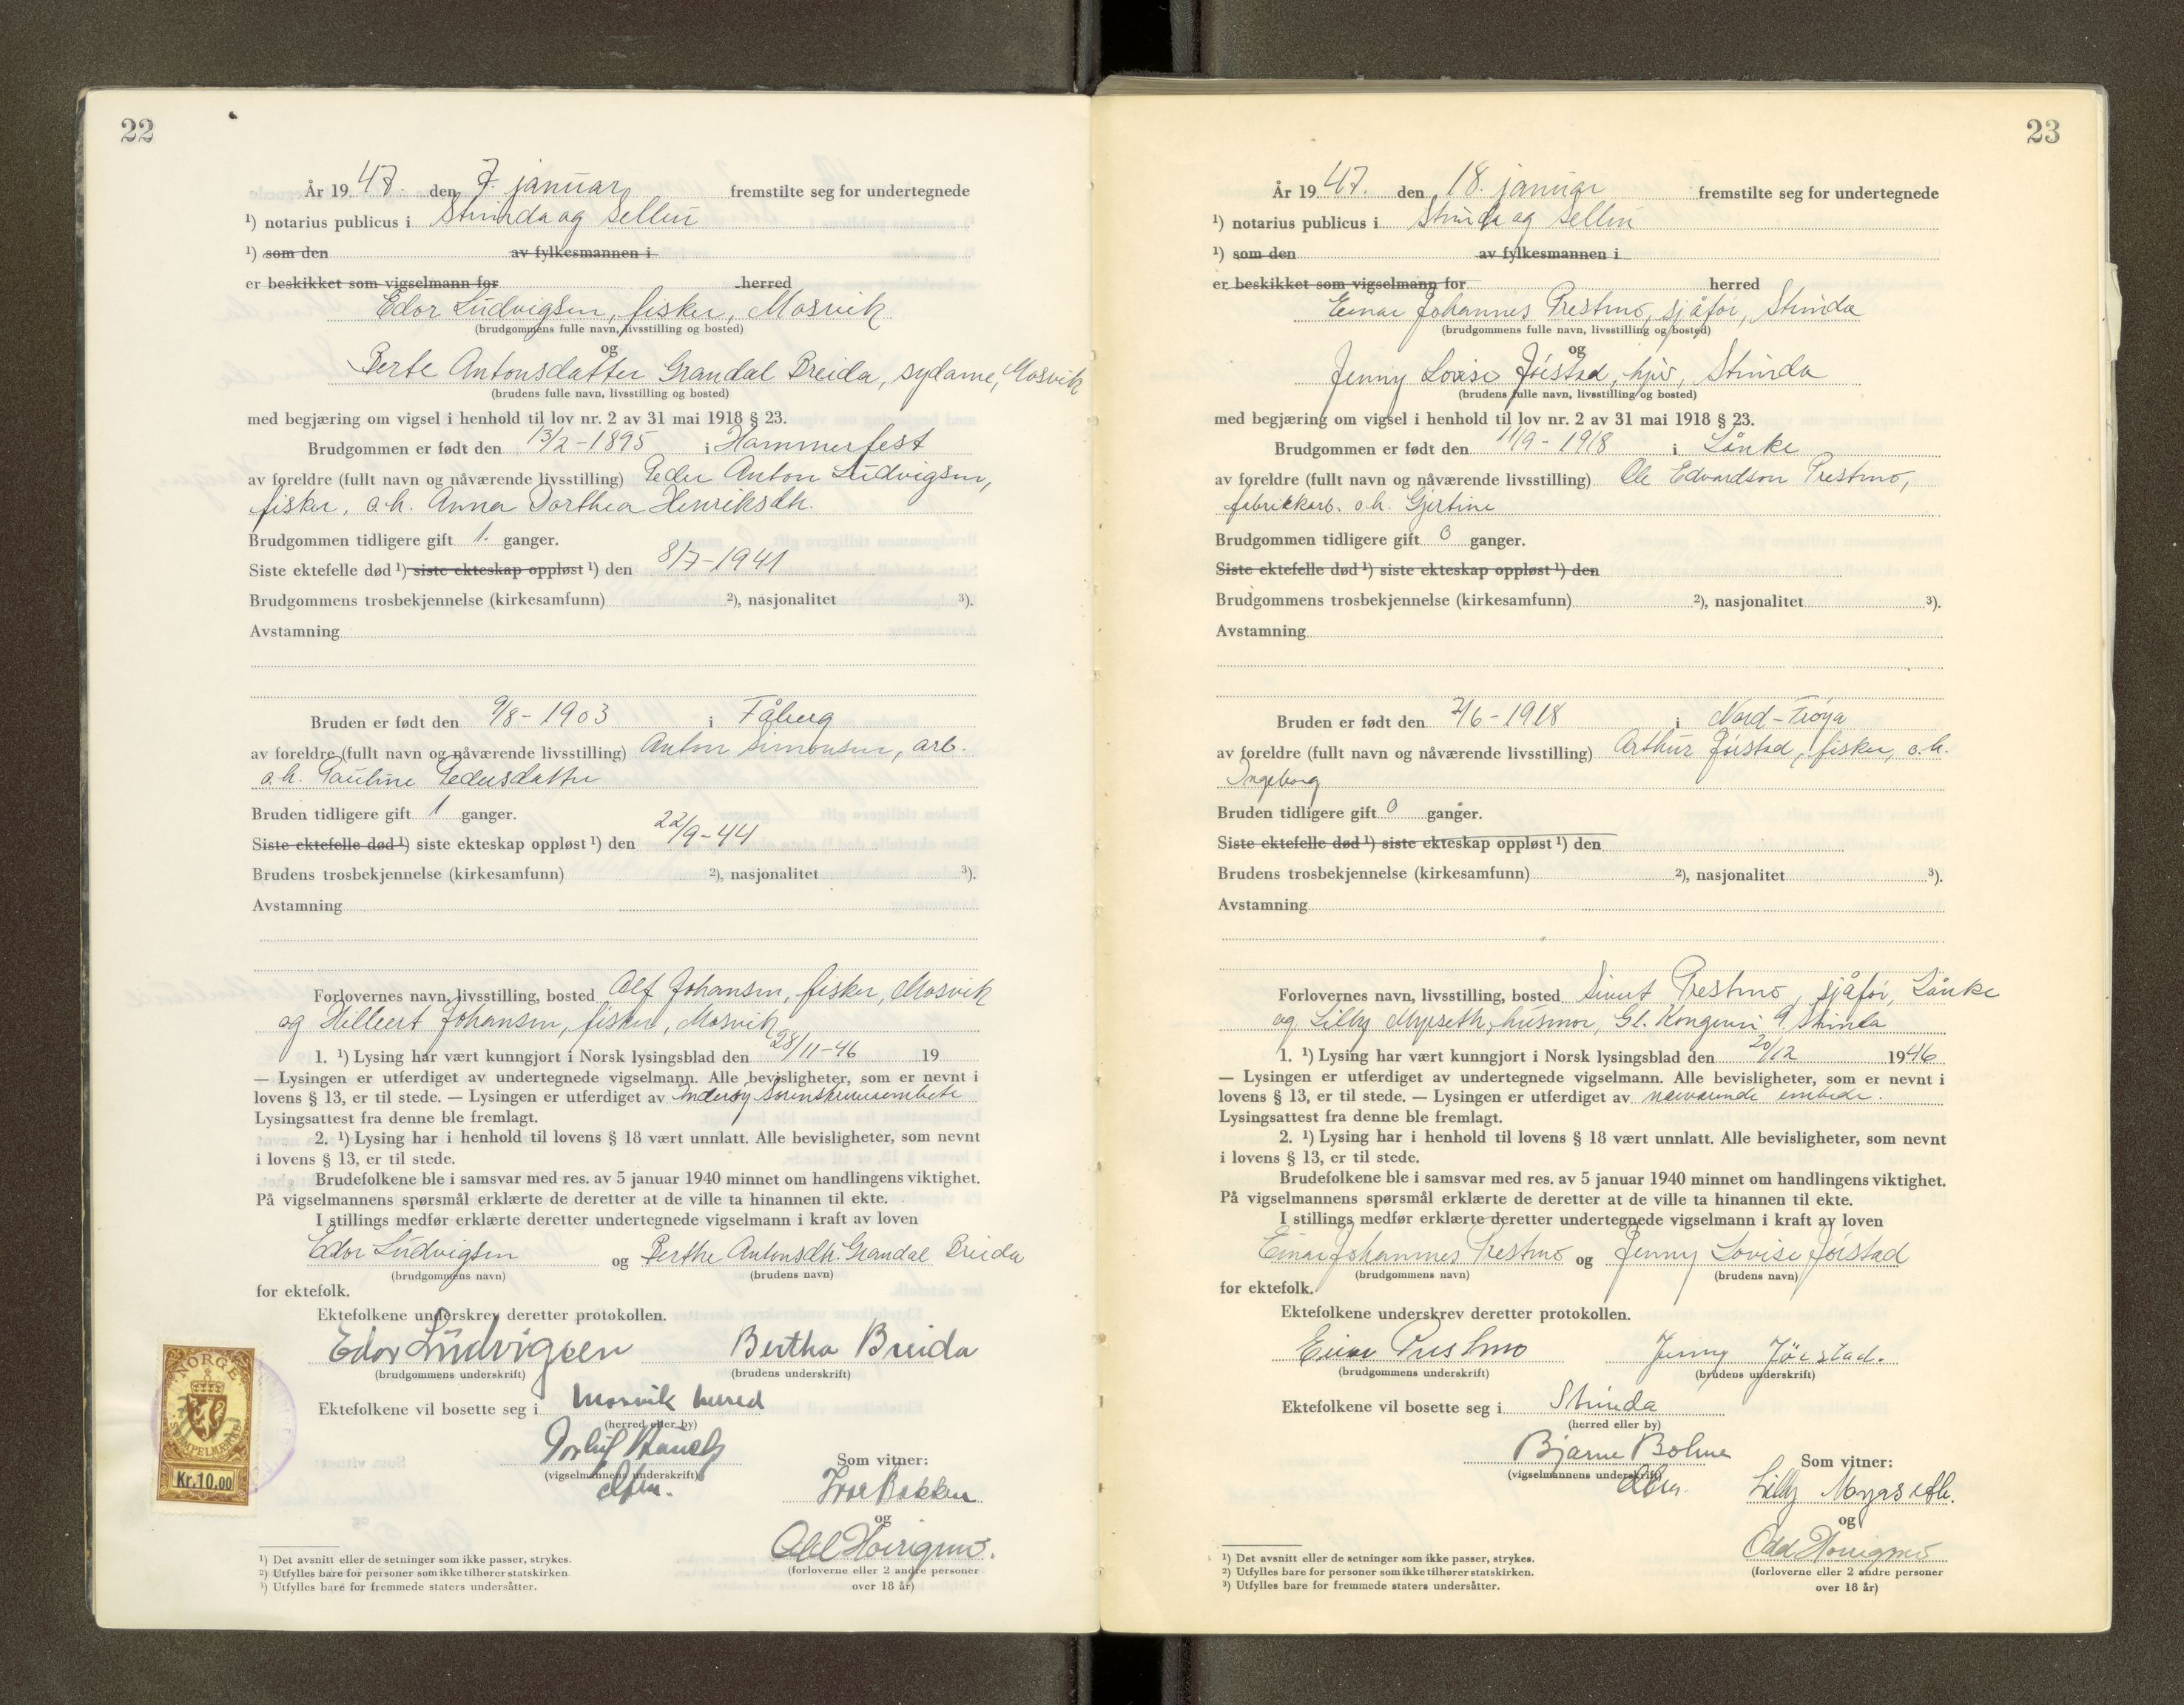 22
År 1947. den 7. januar fremstilte seg for undertegnede
¹) notarius publicus i Strinda og Selbu
¹) som den av fylkesmannen i
er beskikket som vigselmann for herred
Edor Ludvigsen, fisker, Mosvik
(brudgommens fulle navn, livsstilling og bosted)
og
Berte Antonsdatter Grandal Breida, sydame, Mosvik
(brudens fulle navn, livsstilling og bosted)
med begjæring om vigsel i henhold til lov nr. 2 av 31 mai 1918 § 23.
Brudgommen er født den 13/2-1895 i Hammerfest
av foreldre (fullt navn og nåværende livsstilling) Peder Anton Ludvigsen,
fisker, o.h. Anna Dorthea Henriksdtr.
Brudgommen tidligere gift 1. ganger.
Siste ektefelle død ¹) siste ekteskap oppløst ¹) den 8/7-1941
Brudgommens trosbekjennelse (kirkesamfunn) ²), nasjonalitet ³).
Avstamning
Bruden er født den 9/8-1903 i Fåberg
av foreldre (fullt navn og nåværende livsstilling) Anton Simonsen, arb.
o.h. Pauline Pedersdatter
Bruden tidligere gift 1 ganger.
Siste ektefelle død ¹) siste ekteskap oppløst ¹) den 22/9-44
Brudens trosbekjennelse (kirkesamfunn) ²), nasjonalitet ³).
Avstamning
Forlovernes navn, livsstilling, bosted Alf Johansen, fisker, Mosvik
og Hilbert Johansen, fisker, Mosvik
1. ¹) Lysing har vært kunngjort i Norsk lysingsblad den 28/11-46 19
— Lysingen er utferdiget av undertegnede vigselmann. Alle bevisligheter, som er nevnt i
lovens § 13, er til stede. — Lysingen er utferdiget av Inderøy Sorenskriverembete
Lysingsattest fra denne ble fremlagt.
2. ¹) Lysing har i henhold til lovens § 18 vært unnlatt. Alle bevisligheter, som nevnt
i lovens § 13, er til stede.
Brudefolkene ble i samsvar med res. av 5 januar 1940 minnet om handlingens viktighet.
På vigselmannens spørsmål erklærte de deretter at de ville ta hinannen til ekte.
I stillings medfør erklærte deretter undertegnede vigselmann i kraft av loven
Edor Ludvigsen og Berthe Antonsdtr. Grandal Breida
(brudgommens navn) (brudens navn)
for ektefolk.
Ektefolkene underskrev deretter protokollen.
Edor Ludvigsen Bertha Breida
(brudgommens underskrift) (brudens underskrift)
Ektefolkene vil bosette seg i Mosvik herred
(herred eller by)
(vigselmannens underskrift)
Som vitner:
Ivar Bakken
og
Odd Hoirigmo.
(forloverne eller 2 andre personer
over 18 år)
NORGE
STEMPELMERKE
Kr.10.00
¹) Det avsnitt eller de setninger som ikke passer, strykes.
²) Utfylles bare for personer som ikke tilhører statskirken.
³) Utfylles bare for fremmede staters undersåtter.
23
År 1947. den 18. januar fremstilte seg for undertegnede
¹) notarius publicus i Strinda og Selbu
¹) som den av fylkesmannen i
er beskikket som vigselmann for herred
Einar Johannes Prestmo, sjåfør, Strinda
(brudgommens fulle navn, livsstilling og bosted)
og
Jenny Lovise Jørstad, hjv, Strinda
(brudens fulle navn, livsstilling og bosted)
med begjæring om vigsel i henhold til lov nr. 2 av 31 mai 1918 § 23.
Brudgommen er født den 11/9-1918 i Lånke
av foreldre (fullt navn og nåværende livsstilling) Ole Edvardson Prestmo,
fabrikkarb. o.h. Gjertine
Brudgommen tidligere gift 0 ganger.
Siste ektefelle død ¹) siste ekteskap oppløst ¹) den
Brudgommens trosbekjennelse (kirkesamfunn) ²), nasjonalitet ³).
Avstamning
Bruden er født den 2/6-1918 i Nord-Frøya
av foreldre (fullt navn og nåværende livsstilling) Arthur Jørstad, fisker, o.h.
Ingeborg
Bruden tidligere gift 0 ganger.
Siste ektefelle død ¹) siste ekteskap oppløst ¹) den
Brudens trosbekjennelse (kirkesamfunn) ²), nasjonalitet ³).
Avstamning
Forlovernes navn, livsstilling, bosted Sivert Prestmo, sjåfør, Lånke
og Lilly Myrseth, husmor, Gl. Kongevei 9, Strinda
1. ¹) Lysing har vært kunngjort i Norsk lysingsblad den 20/12 1946
— Lysingen er utferdiget av undertegnede vigselmann. Alle bevisligheter, som er nevnt i
lovens § 13, er til stede. — Lysingen er utferdiget av nærværende embede.
Lysingsattest fra denne ble fremlagt.
2. ¹) Lysing har i henhold til lovens § 18 vært unnlatt. Alle bevisligheter, som nevnt
i lovens § 13, er til stede.
Brudefolkene ble i samsvar med res. av 5 januar 1940 minnet om handlingens viktighet.
På vigselmannens spørsmål erklærte de deretter at de ville ta hinannen til ekte.
I stillings medfør erklærte deretter undertegnede vigselmann i kraft av loven
Einar Johannes Prestmo og Jenny Lovise Jørstad
(brudgommens navn) (brudens navn)
for ektefolk.
Ektefolkene underskrev deretter protokollen.
Einar Prestmo Jenny Jørstad.
(brudgommens underskrift) (brudens underskrift)
Ektefolkene vil bosette seg i Strinda
(herred eller by)
Bjarne Bolme
(vigselmannens underskrift)
Som vitner:
Lilly Myrseth.
og
Odd Hoirigmo
(forloverne eller 2 andre personer
over 18 år)
¹) Det avsnitt eller de setninger som ikke passer, strykes.
²) Utfylles bare for personer som ikke tilhører statskirken.
³) Utfylles bare for fremmede staters undersåtter.